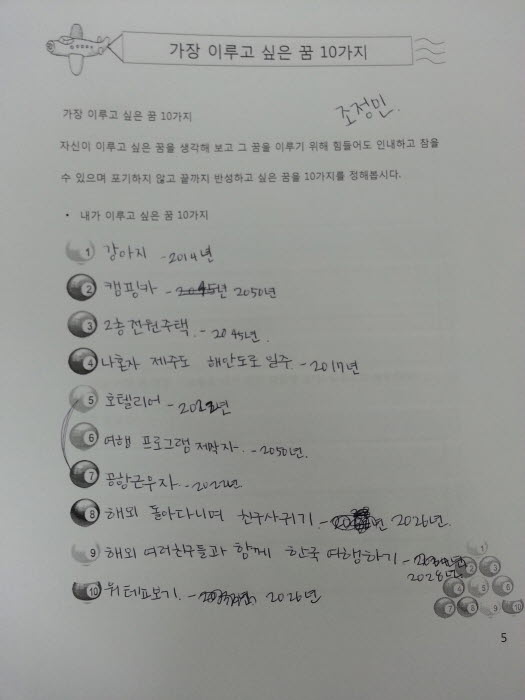 가장 이루고 싶은 꿈 10가지
가장 이루고 싶은 꿈 10가지
조정민.
자신이 이루고 싶은 꿈을 생각해 보고 그 꿈을 이루기 위해 힘들어도 인내하고 참을
수 있으며 포기하지 않고 끝까지 반성하고 싶은 꿈을 10가지를 정해봅시다.
• 내가 이루고 싶은 꿈 10가지
1 강아지 - 2014년
2 캠핑카 - 2045년 2050년
3 2층 전원주택. - 2045년.
4 나혼자 제주도 해안도로 일주. - 2017년
5 호텔리어 - 2022년
6 여행 프로그램 제작자. - 2050년.
7 공항근무자. - 2022년
8 해외 돌아다니며 친구사귀기. - 년 2026년.
9 해외 여러친구들과 함께 한국 여행하기 -
2028년.
10 뮤테파보기. - 2026년
1
2 3
4 5 6
7 8 9 10
5